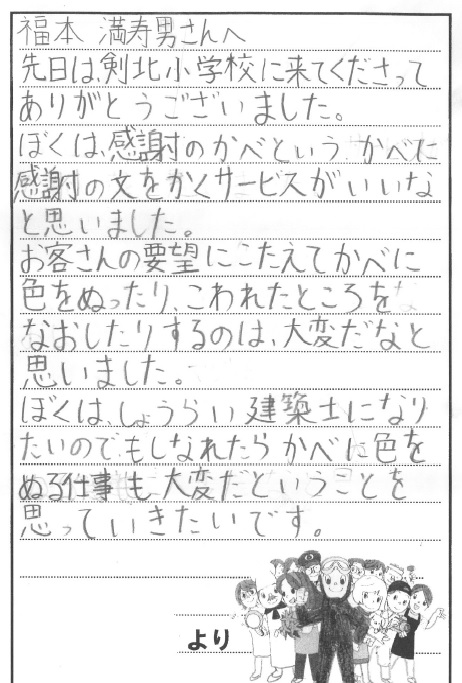 福本 満寿男さんへ
先日は剣北小学校に来てくださって
ありがとうございました。
ぼくは、感謝のかべという かべに
感謝の文をかくサービスがいいな
と思いました。
お客さんの要望にこたえてかべに
色をぬったり、こわれたところを
なおしたりするのは、大変だなと
思いました。
ぼくは、しょうらい 建築士になり
たいのでもしなれたらかべに色を
ぬる仕事も大変だということを
思っていきたいです。
より